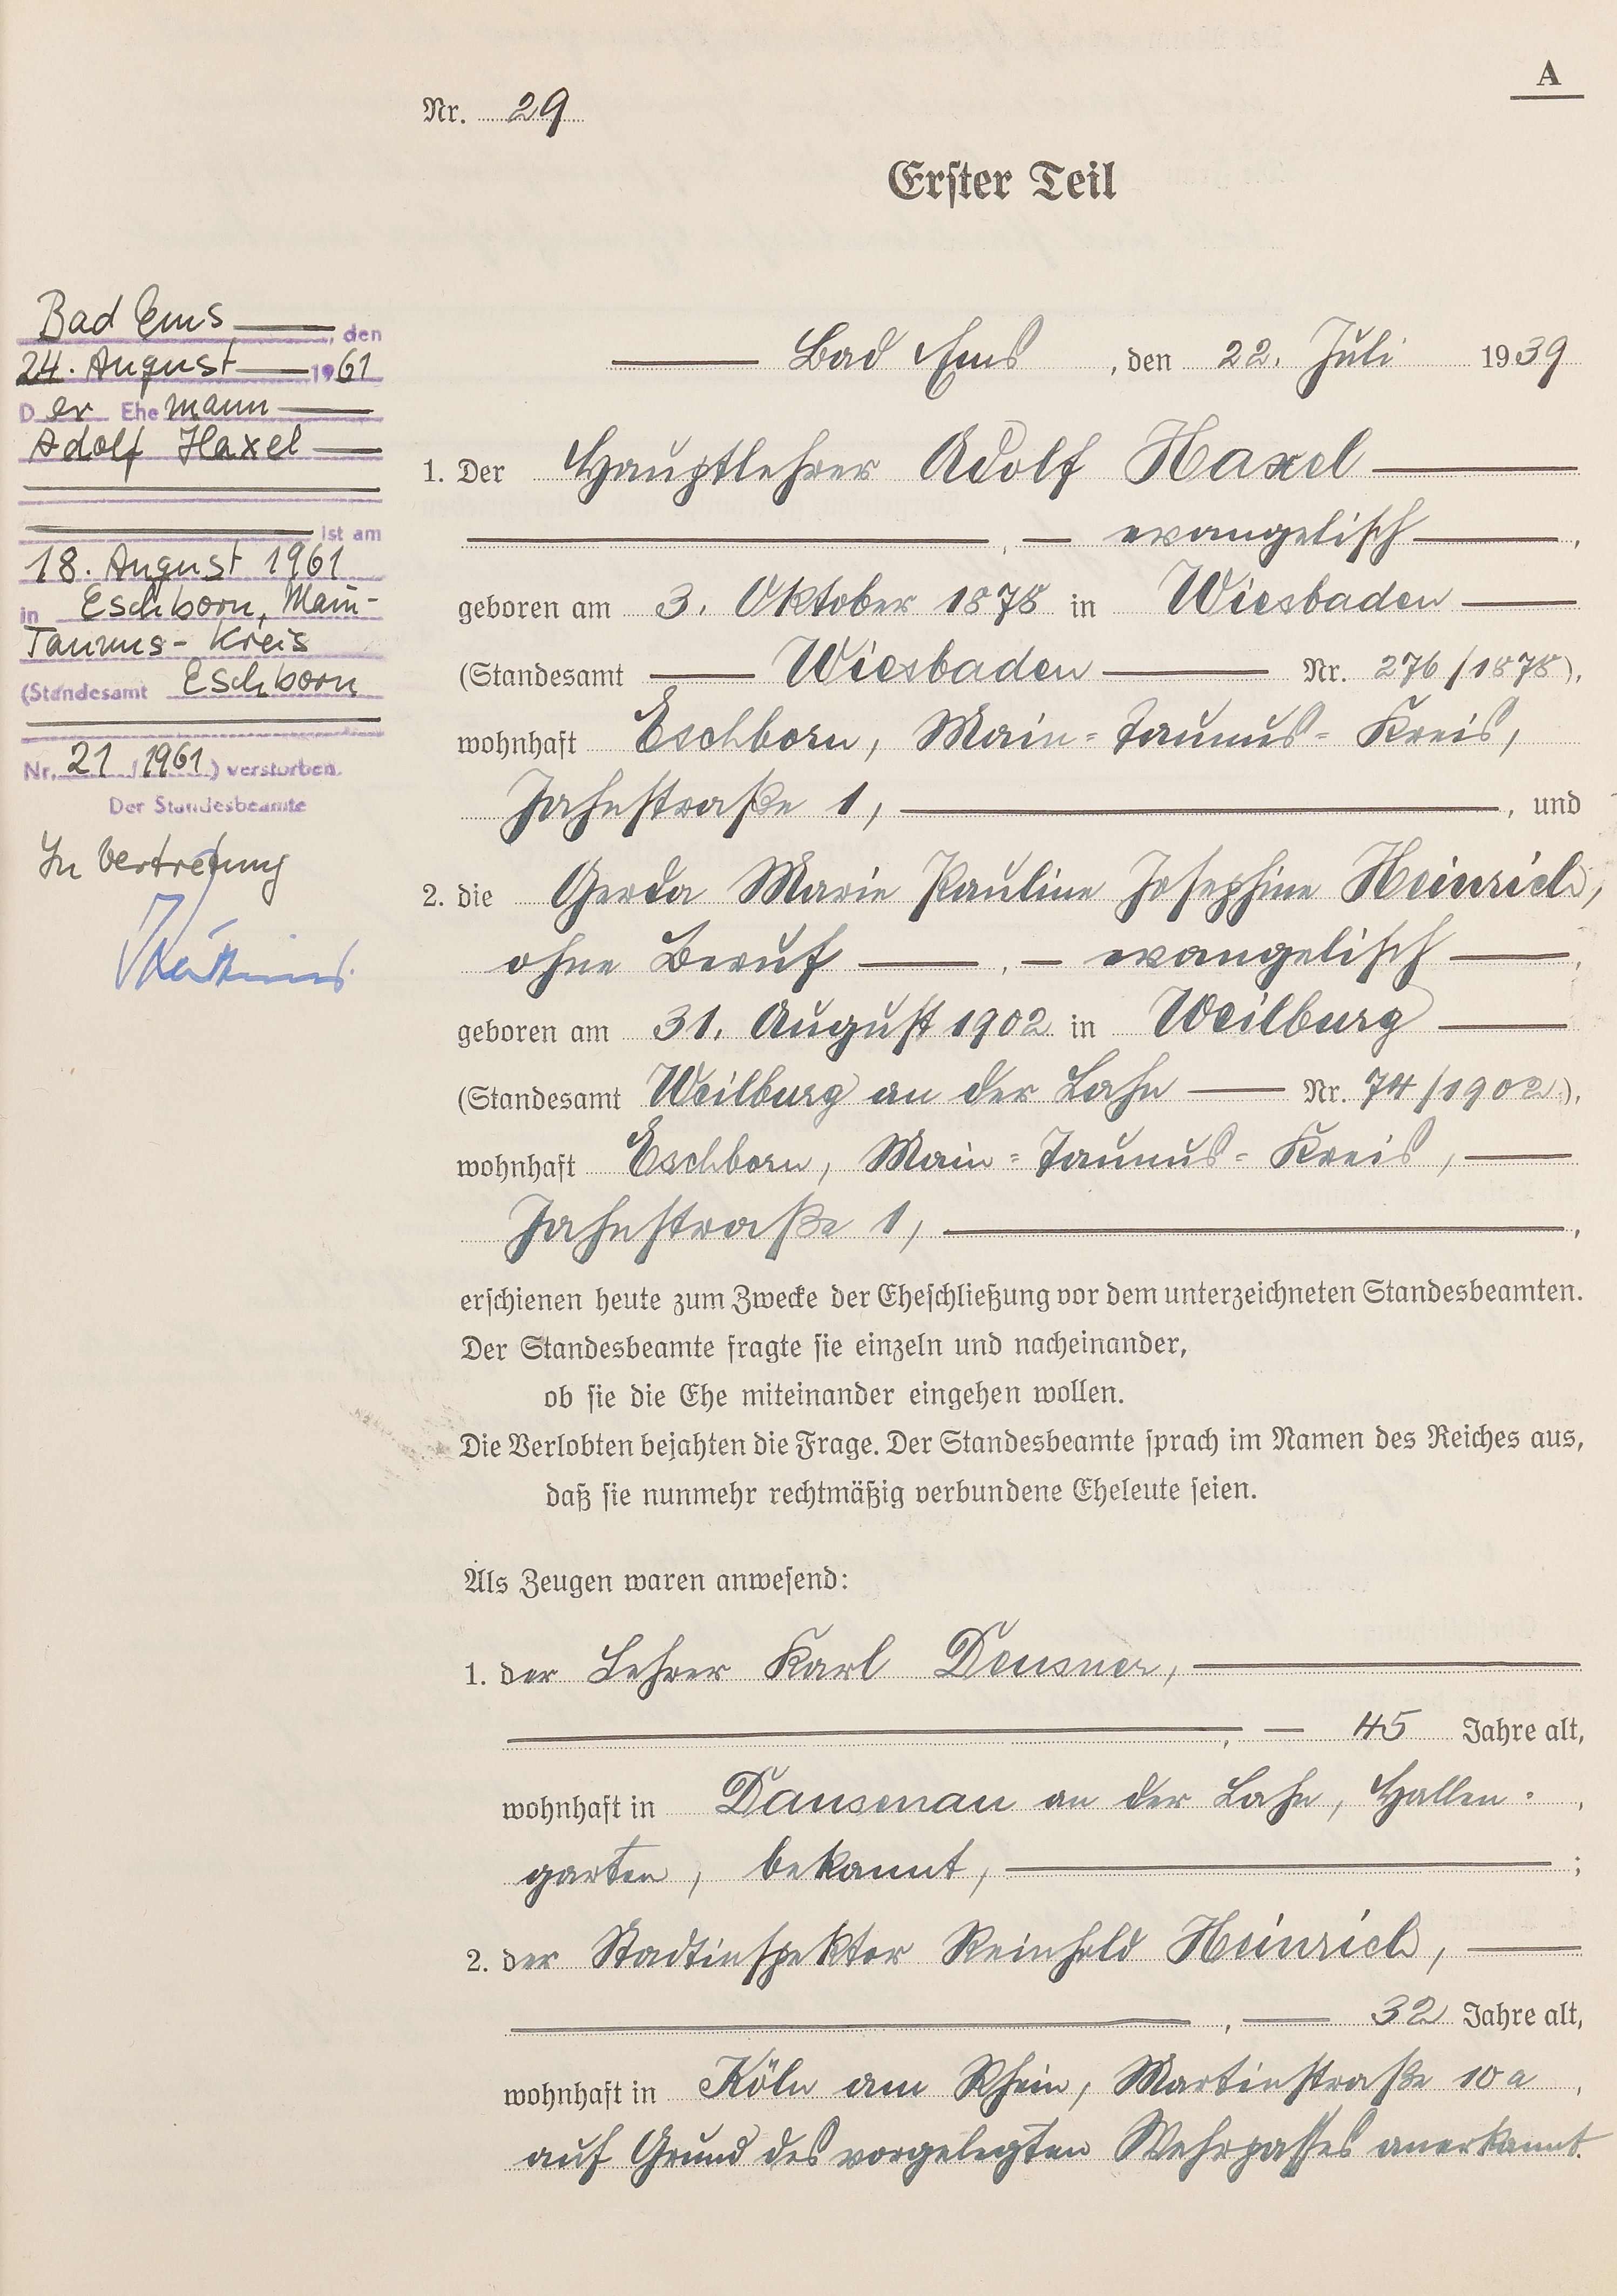 A
Nr. 29
Erster Teil
Bad Ems, den
24. August 1961
Der Ehemann
Adolf Haxel
ist am
18. August 1961
in Eschborn, Main-
Taunus-Kreis
(Standesamt Eschborn
Nr. 21/1961) verstorben.
Der Standesbeamte
In Vertretung
Bad Ems, den 22. Juli 1939
1. Der Hauptlehrer Adolf Haxel
, — evangelisch,
geboren am 3. Oktober 1878 in Wiesbaden
(Standesamt Wiesbaden Nr. 276/1878),
wohnhaft Eschborn, Main=Taunus=Kreis,
Jahnstraße 1, , und
2. die Gerda Marie Pauline Josephine Heinrich,
ohne Beruf , — evangelisch ,
geboren am 31. August 1902 in Weilburg
(Standesamt Weilburg an der Lahn Nr. 74/1902),
wohnhaft Eschborn, Main=Taunus=Kreis,
Jahnstraße 1, ,
erschienen heute zum Zwecke der Eheschließung vor dem unterzeichneten Standesbeamten.
Der Standesbeamte fragte sie einzeln und nacheinander,
ob sie die Ehe miteinander eingehen wollen.
Die Verlobten bejahten die Frage. Der Standesbeamte sprach im Namen des Reiches aus,
daß sie nunmehr rechtmäßig verbundene Eheleute seien.
Als Zeugen waren anwesend:
1. der Lehrer Karl Deusner,
, — 45 Jahre alt,
wohnhaft in Dausenau an der Lahn, Hallen= ,
garten, bekannt, ;
2. der Stadtinspektor Reinhold Heinrich,
, — 32 Jahre alt,
wohnhaft in Köln am Rhein, Martinstraße 10a ,
auf Grund des vorgelegten Wehrpasses anerkannt.